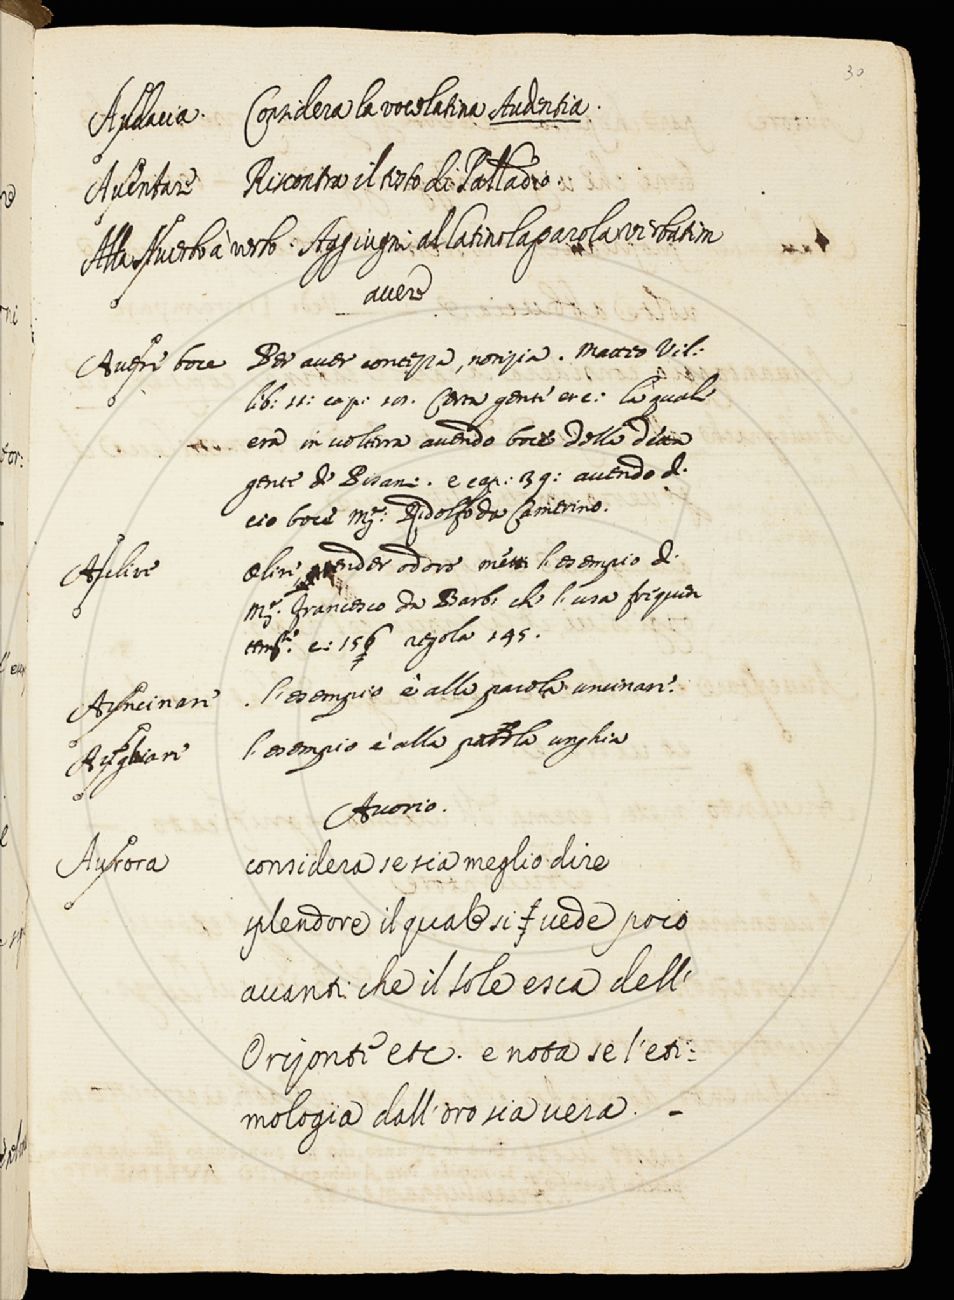 30
Audacia. Considera la voce latina Audentia.
Aventare Riscontra il testo di Palladio.
Alla Averbo à verbo. Aggiugni al latino la parola verbatim
avere
Avere boce Per aver contezza, notizia. Matteo Vil:
lib: 11: cap: 101. Certa gente etc: la quale
era in volterra avendo boce della detta
gente de Pisani. e cap: 39: avendo di
cio boce Mr: Ridolfo da Camerino.
Aulire olire render odore metti l'esempio di
Mr. Francesco da Barbi che l'usa frequen
temte. c: 156 regola 145.
Auncinare. l'esempio è alla parola uncinare.
Aunghiare l'esempio è alla parola unghia
Avorio.
Aurora considera se sia meglio dire
splendore il quale si vede poco
avanti che il sole esca dell'
Orizonte etc. e nota se l'eti:
mologia dall'oro sia vera. -